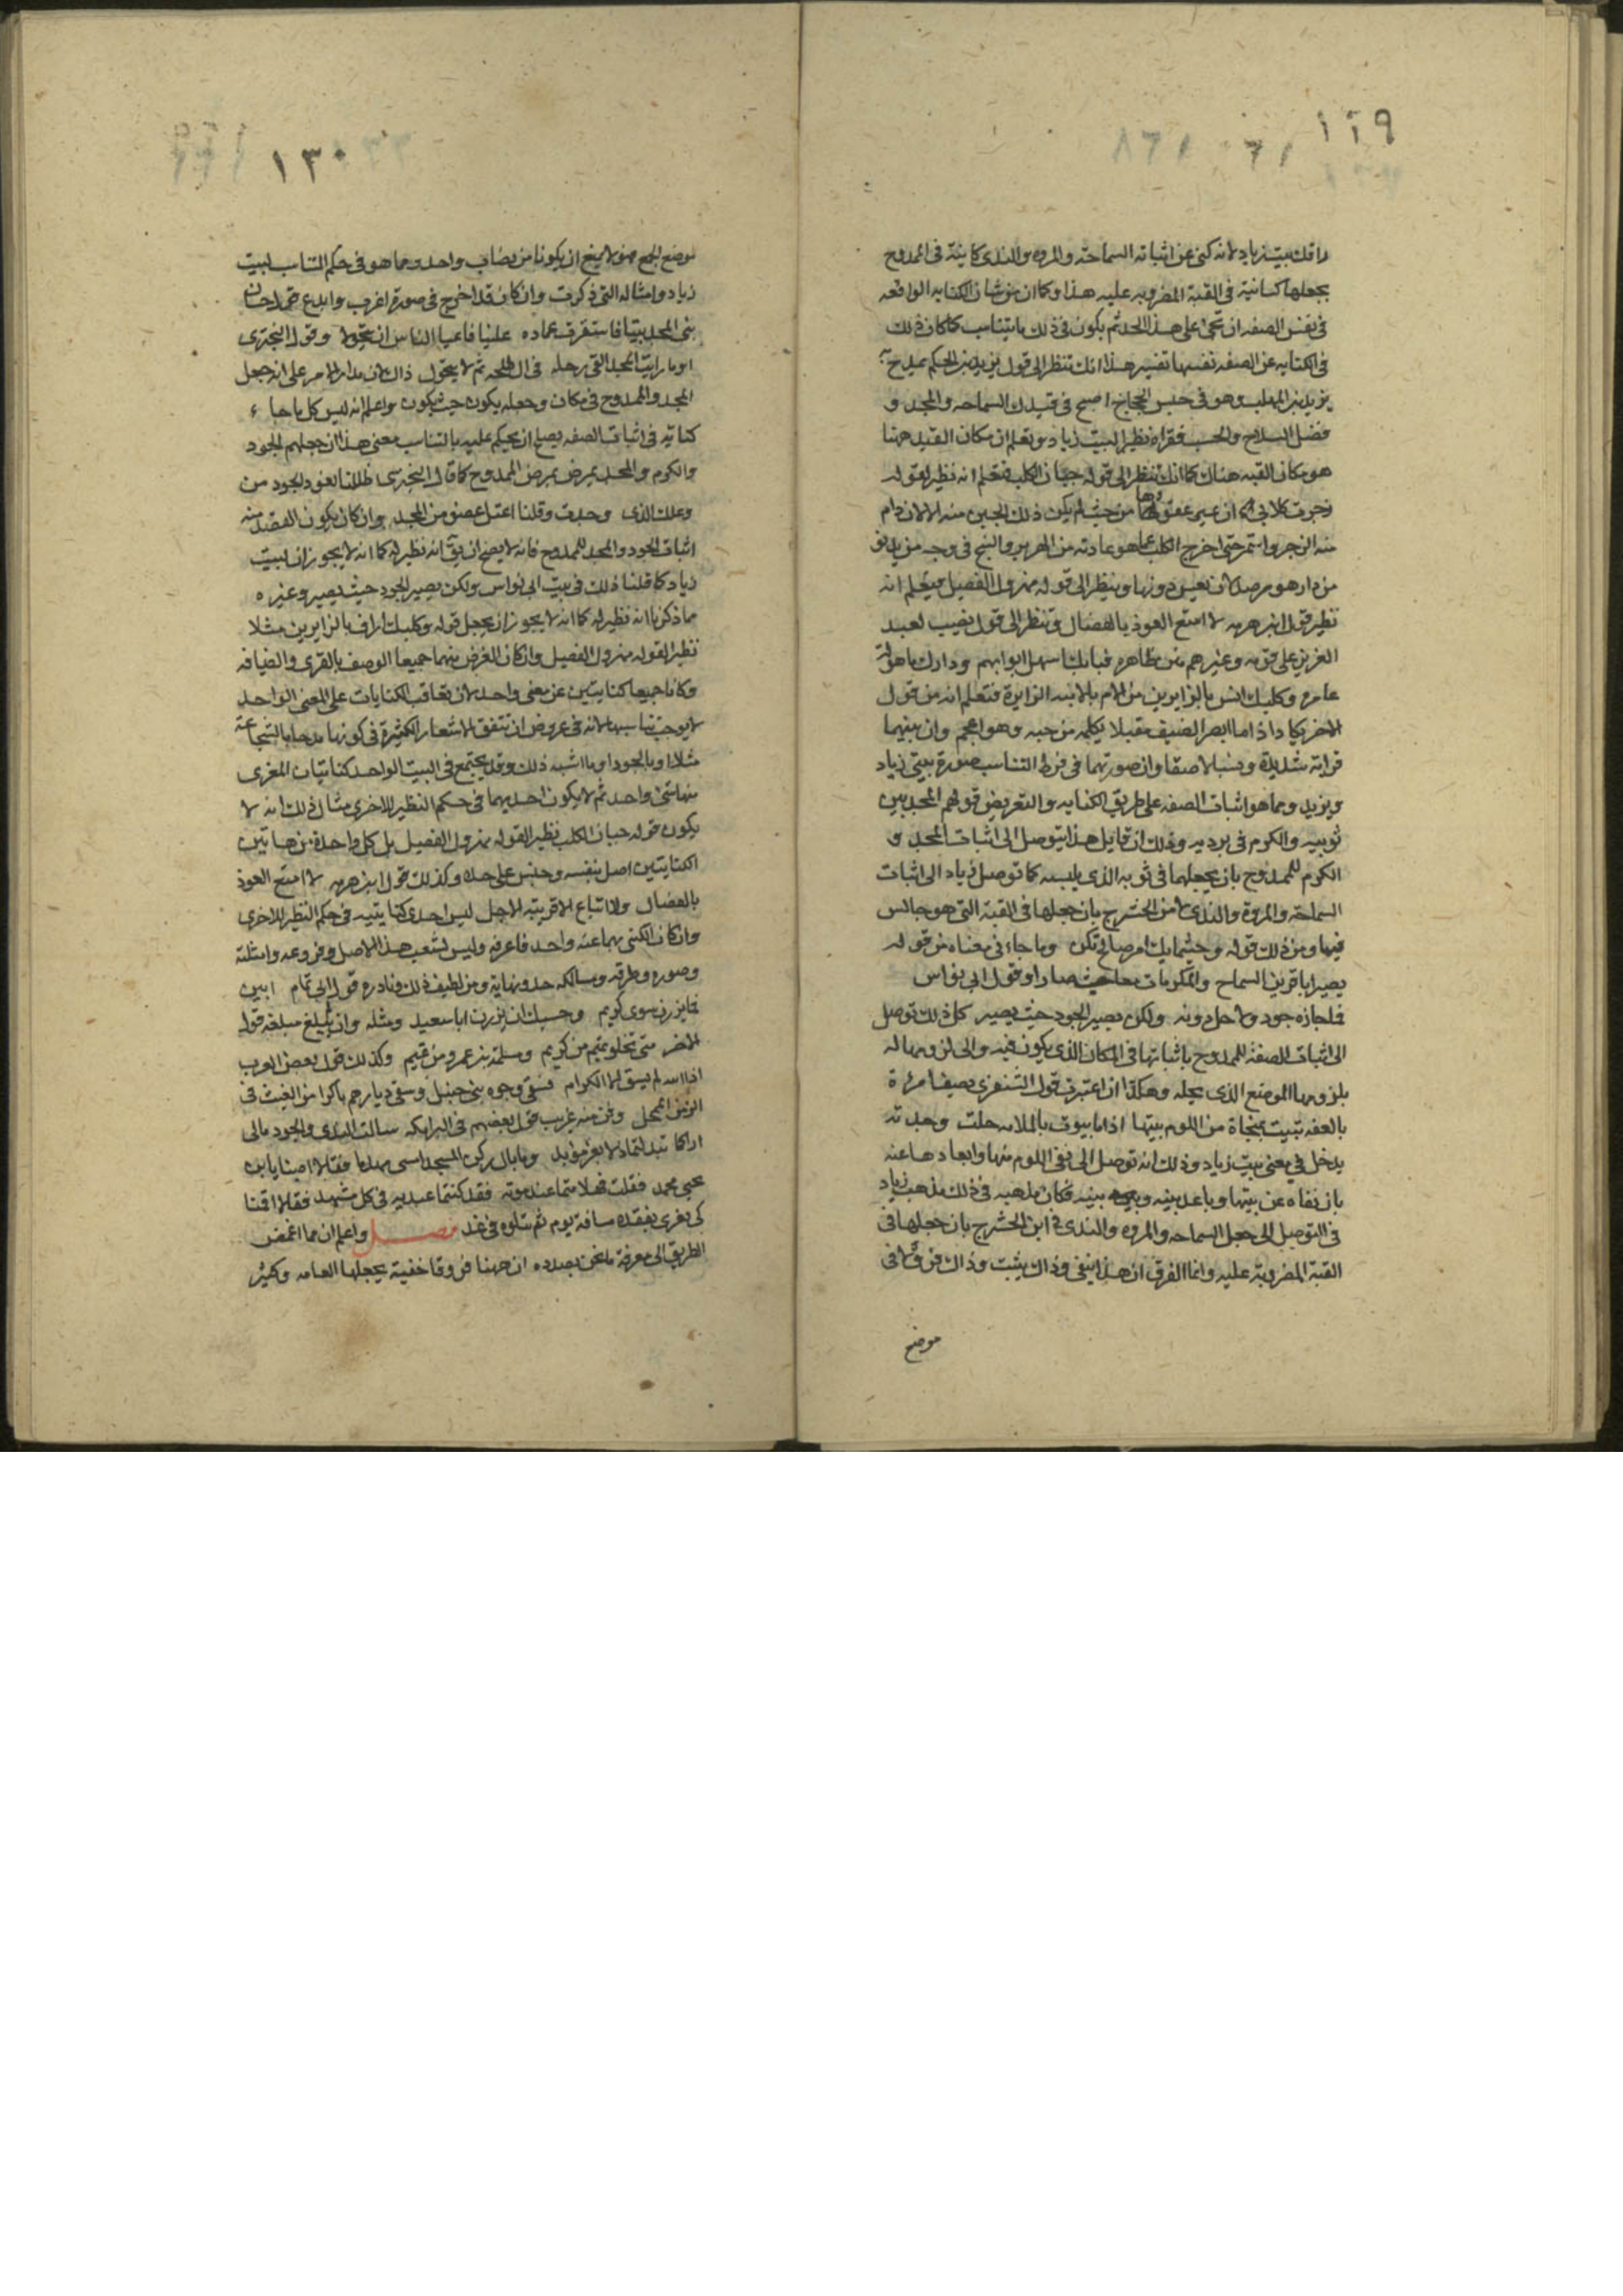 ١٢٩
راقك بيت زياد لانه كنى عن اثباته السماحته والمروه والندى كاينة في الممدوح
بجعلها كائنة في القبة المضروبه عليه هذا وكما ان من شان الكنايه الواقعه
في نفس الصفه ان تجئ على هذا الحد ثم يكون في ذلك ما يتناسب كما كان ذلك
في الكنايه عن الصفه نفسها تفسير هذا انك تنظر الى قول يزيد بن الحكم يمدح به
يزيد بن المهلب وهو في حبس الحجاج اصبح في قيدك السماحه والمجد و
فضل الصلاح والحسب فتراه نظير البيت زياد وتعلم ان مكان القيد ههنا
هو مكان القبه هناك كما انك تنظر الى قوله جبان الكلب فتعلم انه نظير لقوله
زجرت كلابي ان يهر عقورها من حيث لم يكن ذلك الجبن منه الا لان دام
منه الزجر واستمر حتى اخرج الكلب عما هو عادته من الهرير والنبح في وجه من يدنو
من دار هو مرصد لان يعس دونها وينظر الى قوله مهزول الفصيل فيعلم انه
نظير قول ابن هرمه لا امتع العوذ بالفصال وتنظر الى قول نصيب لعبد
العزيز على قومه وغيرهم منن ظاهره فبابك اسهل ابوابهم ودارك ماهولة
عامره وكلبك انس بالزايرين من الام بالابنه الزايرة فتعلم انه من قول
الاخر يكاد اذا ما ابصر الضيف مقبلا يكلمه من حبه وهو اعجم وان بينهما
قرابة شديدة ونسبا لاصقا وان صورتهما في فرط التناسب صورة بيتي زياد
ويزيد ومما هو اثبات الصفه على طريق الكنايه والتعريض قولهم المجد بين
ثوبيه والكرم في برديه وذلك ان قايل هذا يتوصل الى اثبات المجد و
الكرم للممدوح بان يجعلهما في ثوبه الذي يلبسه كما توصل زياد الى اثبات
السماحة والمروة والندى لابن الحشرج بان جعلها في القبة التي هو جالس
فيها ومن ذلك قوله وحيثما يك امر صالح تكن وما جاء في معناه من قوله
يصير ابا قرين السماح والمكرمات معا حيث صارا وقول ابي نواس
فما جازه جود ولا حل دونه ولكن يصير الجود حيث يصير كل ذلك توصل
الى اثبات الصفة للممدوح باثباتها في المكان الذي يكون فيه والى لزومها له
بلزومها الموضع الذي يحله وهكذا ان اعتبرت قول الشنفرى يصف امراة
بالعفه تبيت بمنجاة من اللوم بيتها اذا ما بيوت بالملامه حلت وجدته
يدخل في معنى بيت زياد وذلك انه توصل الى نفي اللوم عنها وابعادها عنه
بان نفاه عن بيتها وباعد بينه وبين بينه فكان مذهبه في ذلك مذهب زياد
في التوصل الى جعل السماحه والمروه والندى في ابن الحشرج بان جعلها في
القبة المضروبة عليه وانما الفرق ان هذا ينفي وذاك يثبت وذاك فرق لا في
موضع
١٣٠
موضع الجمع فهو لا يمنع ان يكونا من نصاب واحد ومما هو في حكم المناسب لبيت
زياد وامثاله التي ذكرت وان كان قد اخرج في صورة اغرب وابدع قول حسان
بنى المجد بيتا فاستقرت عماده علينا فاعيا الناس ان يتحولا وقول البحتري
اوما رايت المجد القى رحله في ال طلحه ثم لا يتحول ذاك لان مدار الامر على انه جعل
المجد والممدوح في مكان وجعله يكون حيث يكون واعلم انه ليس كل ما جاء
كنايه في اثبات الصفه يصلح ان يحكم عليه بالتناسب معنى هذا ان جعلهم الجود
والكرم والمجد يمرض بمرض الممدوح كما قال البحتري ظللنا نعود الجود من
وعكك الذي وجدت وقلنا اعتل عضو من المجد وان كان يكون القصد منه
اثبات الجود والمجد للممدوح فانه لا يصح ان يق انه نظير له كما انه لا يجوز ان لبيت
زياد كما قلنا ذلك في بيت ابي نواس ولكن يصير الجود حيث يصير وغيره
مما ذكرنا انه نظير له كما انه لا يجوز ان يجعل قوله وكلبك اراف بالزايرين مثلا
نظير القوله مهزول الفصيل وان كان الغرض منهما جميعا الوصف بالقرى والضيافه
وكانا جميعا كنايتين عن معنى واحد لان تعاقب الكنايات على المعنى الواحد
لا يوجب تناسبها لانه في عروض ان تتفق الاشعار الكثيرة في كونها مدحا بالشجاعة
مثلا او بالجود او ما اشبه ذلك وقد يجتمع في البيت الواحد كنايتان المغزى
منهما شئ واحد ثم لا يكون احديهما في حكم النظير للاخرى مثال ذلك انه لا
يكون قوله جبان الكلب نظير القوله مهزول الفصيل بل كل واحدة من هاتين
الكنايتين اصل بنفسه وجنس على حده وكذلك قول ابن هرمه لا امتع العوذ
بالفصال ولا ابتاع الا قريبة الاجل ليس احدى كنايتيه في حكم النظير للاخرى
وان كان المكنى بهما عنه واحد فاعرفه وليس لشعب هذا الاصل وفروعه وامثلته
وصوره وطرقه ومسالكه حد ونهاية ومن لطيف ذلك ونادره قول ابي تمام ابين
فما يزرن سوى كريم وحسبك ان يزرن ابا سعيد ومثله وان لم يبلغ مبلغه قول
الاخر متى تخلو تميم من كريم ومسلمة بن عمرو من تميم وكذلك قول بعض العرب
اذا الله لم يسق الا الكرام فسقى وجوه بني حنبل وسقى ديارهم باكرا من الغيث في
الزمن الممحل وفن منه غريب قول بعضهم في البرامكه سالت الندى والجود مالي
اراكما تبدلتما ذلا بعز مؤبد وما بال ركن المجد امسى مهدما فقالا اصبنا بابن
يحيى محمد فقلت فهلا متما عند موته فقد كنتما عبديه في كل مشهد فقالا اقمنا
كي نعزى بفقده مسافة يوم ثم نتلوه في غد فصل واعلم ان مما اغمض
الطريق الى معرفة ما نحن بصدده ان ههنا فروقا خفية يجهلها العامه وكثير